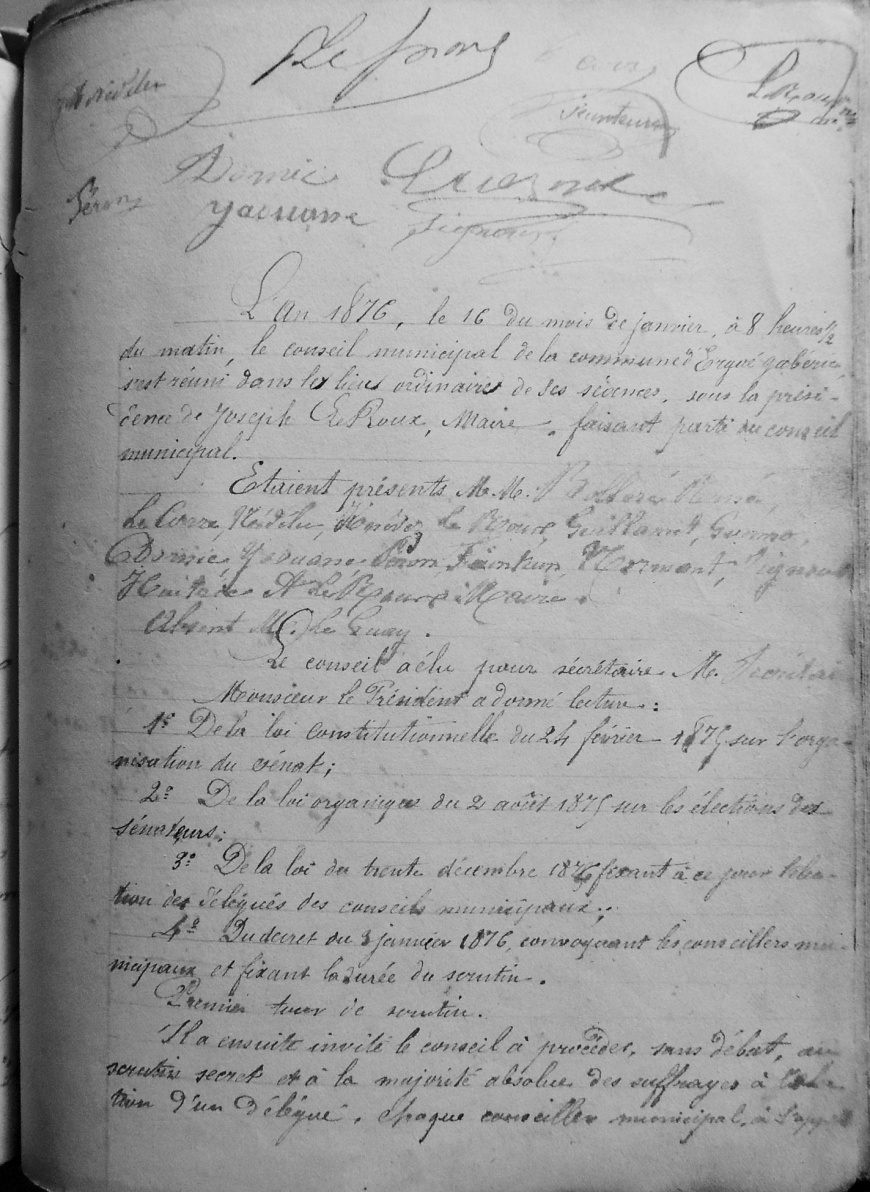 Nédélec
Le
Jeanteur
L Roux
Péron
Dornic
Yaouanc
Signour
L'An 1876, le 16 du mois de janvier, à 8 heures 1/2
du matin, le conseil municipal de la commune d'Ergué gabéric,
s'est réuni dans les lieux ordinaires de ses séances, sous la prési-
dence de Joseph Le Roux, Maire, faisant parti du conseil
municipal.
Etaient présents, M.M. Bolloré René,
Le Corre, Nédélec, le Roux, Guillamet,
Dornic, Yaouanc, Péron, Feunteun, Mormont, Signour
Le Roux Maire.
Absent M. Le Guay.
Le conseil a élu pour secrétaire M.
Monsieur le Président a donné lecture :
1º De la loi constitutionnelle du 24 février 1875 sur l'orga-
nisation du sénat ;
2º De la loi organique du 2 août 1875 sur les élections des
sénateurs ;
3º De la loi du trente décembre 1875 fixant à ce jour l'élec-
tion des délégués des conseils municipaux ;
4º Du decret du 3 janvier 1876, convoquant les conseillers mu-
nicipaux et fixant la durée du scrutin.
Premier tour de scrutin.
Il a ensuite invité le conseil à procéder, sans débat, au
scrutin secret et à la majorité absolue des suffrages à l'élec-
tion d'un délégué. Chaque conseiller municipal, à l'appel